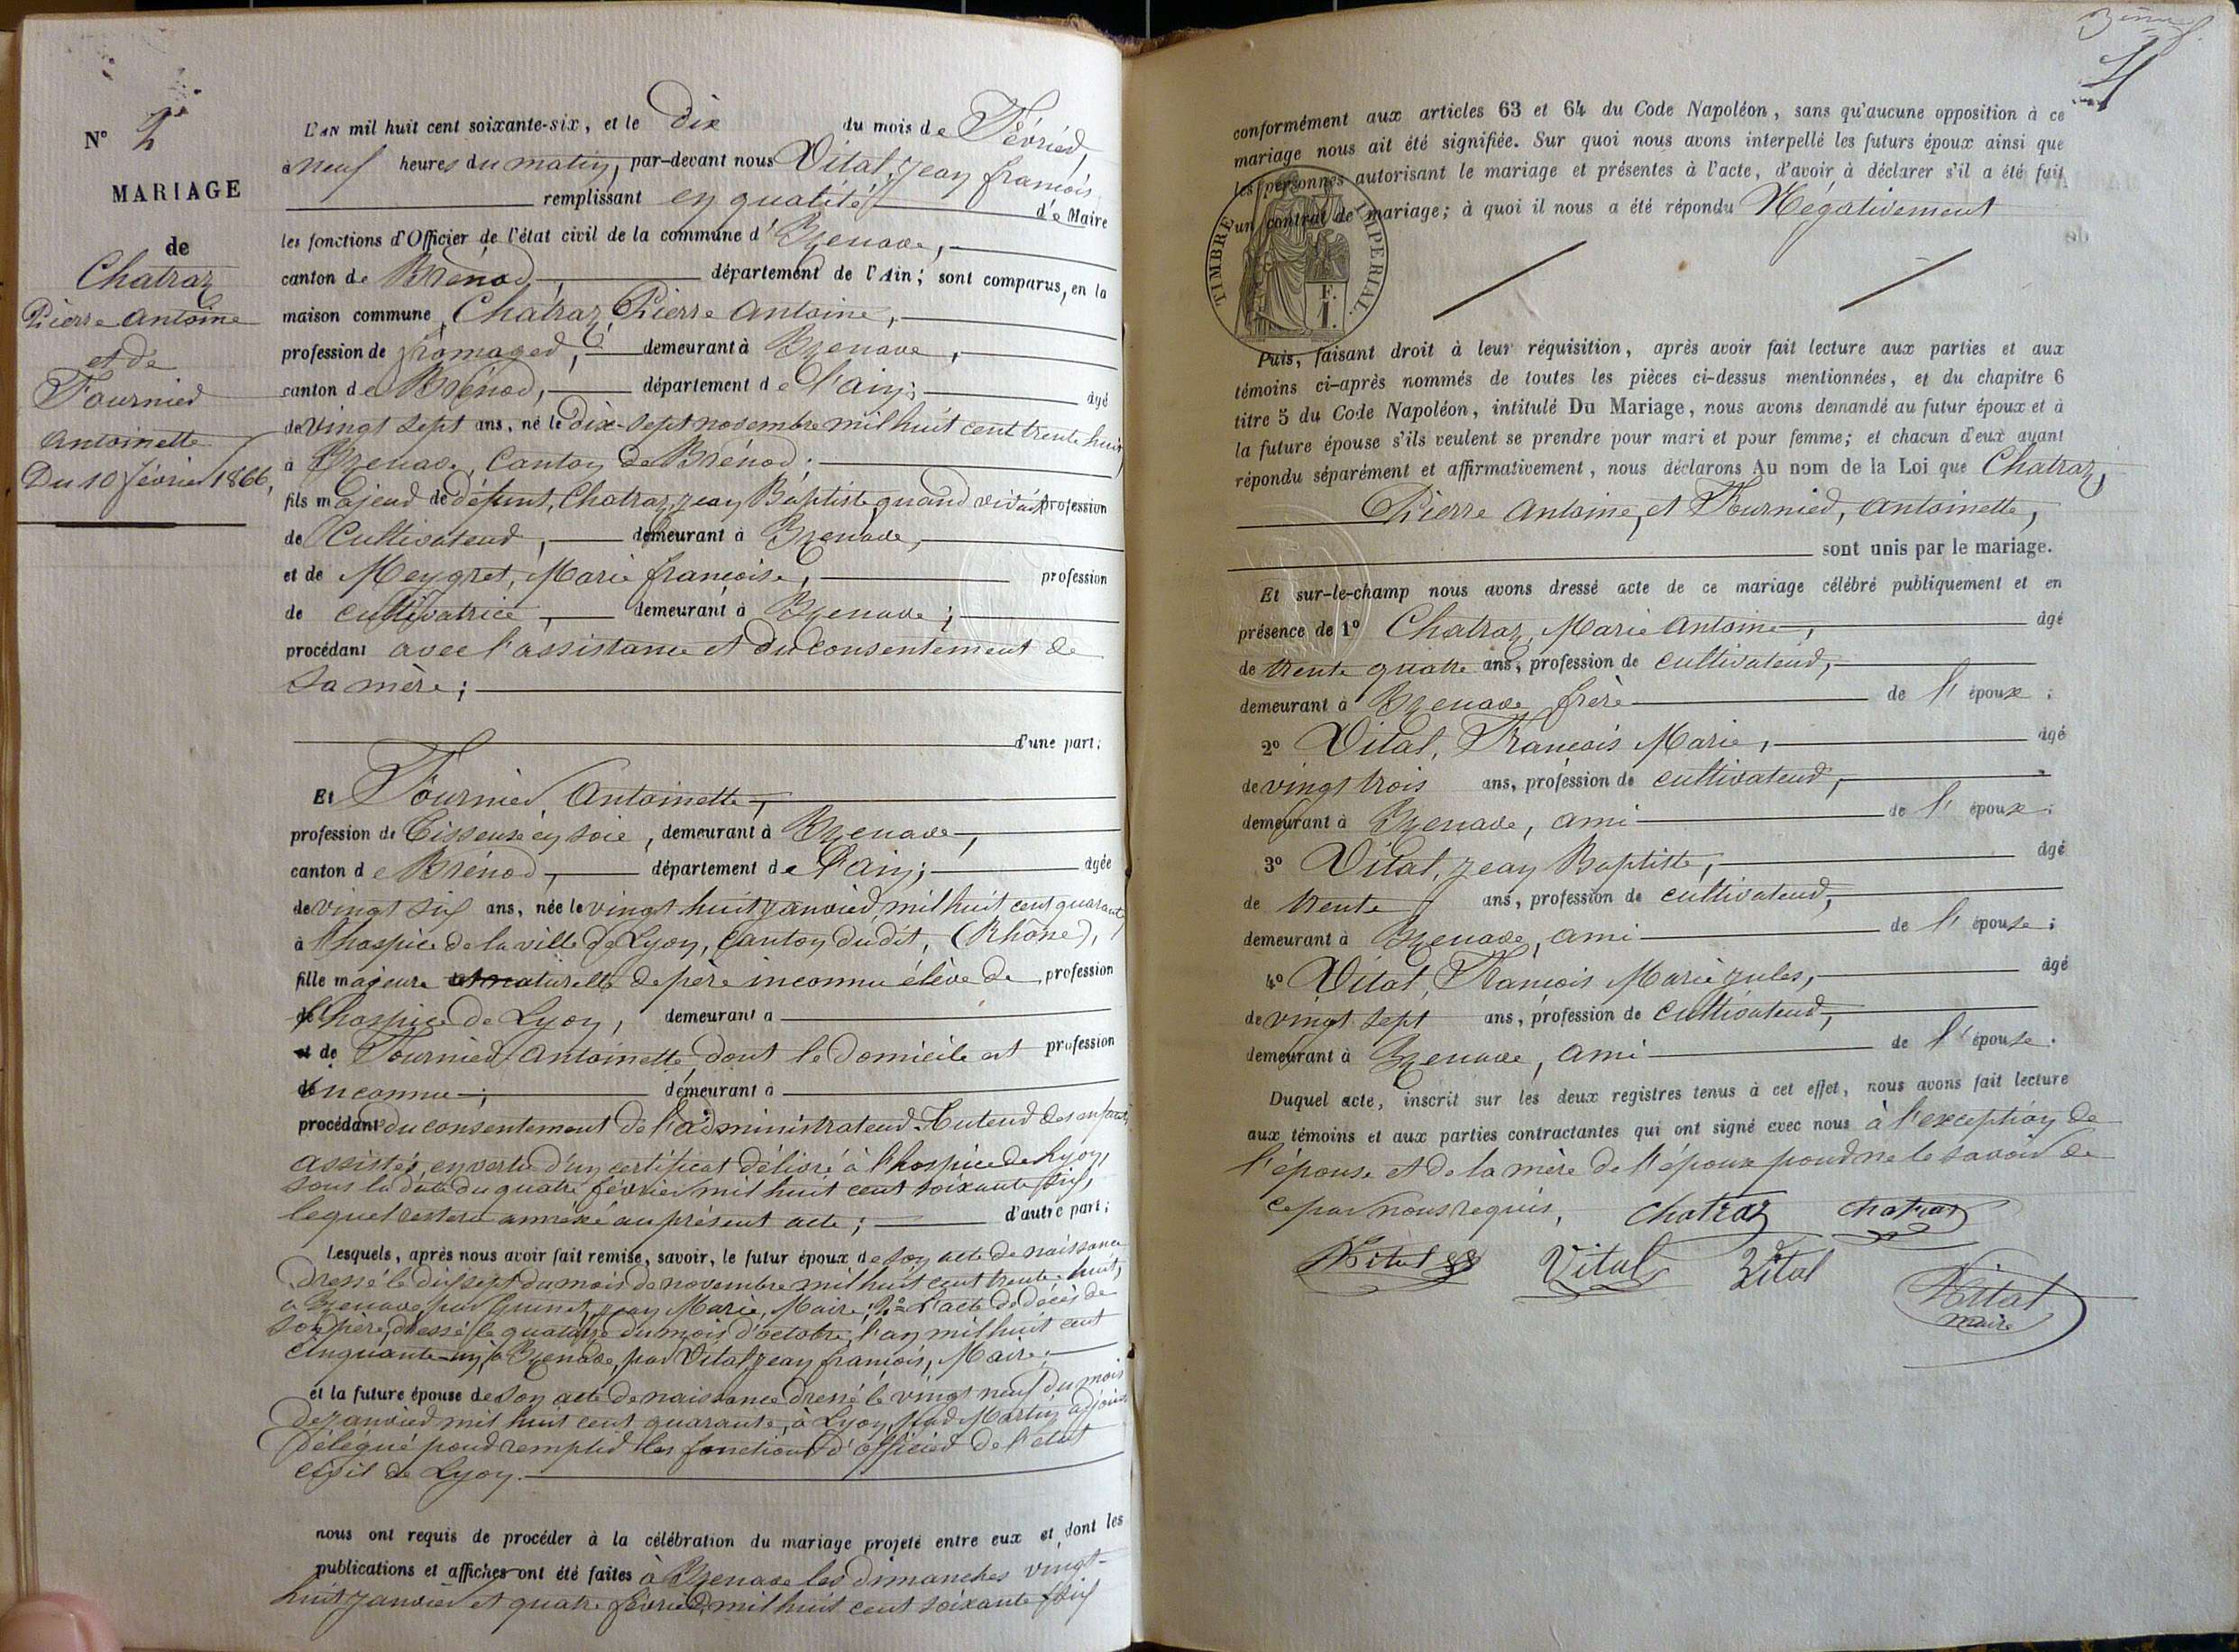 N° 2
MARIAGE
de
Chatraz
Pierre Antoine
et de
Fournier
Antoinette
Du 10 février 1866,
L'AN mil huit cent soixante-six, et le Dix du mois de Février,
à neuf heures du matin, par-devant nous Vital, Jean françois
remplissant en qualité de Maire
les fonctions d'Officier de l'état civil de la commune d'Izenave,
canton de Brénod, département de l'Ain; sont comparus, en la
maison commune, Chatraz, Pierre Antoine,
profession de fromager, demeurant à Izenave,
canton de Brénod, département de l'ain; âgé
de vingt sept ans, né le dix-sept novembre mil huit cent trente huit
à Izenave, Canton de Brénod;
fils majeur de défunt, Chatraz, Jean Baptiste quand vivait profession
de Cultivateur, demeurant à Izenave,
et de Meygret, Marie françoise, profession
de cultivatrice, demeurant à Izenave;
procédant avec l'assistance et du consentement de
sa mère;
d'une part;
Et Fournier Antoinette,
profession de Tisseuse en soie, demeurant à Izenave,
canton de Brénod, département de l'ain; âgée
de vingt six ans, née le vingt huit janvier mil huit cent quarante
à l'hospice de la ville de Lyon, Canton dudit, (Rhône),
fille majeure et naturelle de père inconnu élève de profession
l'hospice de Lyon, demeurant à
et de Fournier Antoinette dont le domicile est profession
inconnu; demeurant à
procédant du consentement de l'administrateur-Tuteur des enfants
assistés, en vertu d'un certificat délivré à l'hospice de Lyon,
sous la date du quatre février mil huit cent soixante six,
lequel restera annexé au présent acte; d'autre part;
Lesquels, après nous avoir fait remise, savoir, le futur époux de son acte de naissance
dressé le dix sept du mois de novembre mil huit cent trente-huit,
à Izenave par Guinet, Jean Marie, Maire; 2° l'acte de décès de
son père, dressé le quatorze du mois d'octobre, l'an mil huit cent
cinquante-un, à Izenave, par Vital Jean françois, Maire;
et la future épouse de son acte de naissance dressé le vingt neuf du mois
de janvier mil huit cent quarante, à Lyon, par Martin adjoint
délégué pour remplir les fonctions d'officier de l'état
civil de Lyon.
nous ont requis de procéder à la célébration du mariage projeté entre eux et dont les
publications et affiches ont été faites à Izenave les dimanches vingt-
huit janvier et quatre février mil huit cent soixante six
4
conformément aux articles 63 et 64 du Code Napoléon, sans qu'aucune opposition à ce
mariage nous ait été signifiée. Sur quoi nous avons interpellé les futurs époux ainsi que
les personnes autorisant le mariage et présentes à l'acte, d'avoir à déclarer s'il a été fait
d'un contrat de mariage; à quoi il nous a été répondu Négativement
TIMBRE IMPERIAL
F.
1.
Puis, faisant droit à leur réquisition, après avoir fait lecture aux parties et aux
témoins ci-après nommés de toutes les pièces ci-dessus mentionnées, et du chapitre 6
titre 5 du Code Napoléon, intitulé Du Mariage, nous avons demandé au futur époux et à
la future épouse s'ils veulent se prendre pour mari et pour femme; et chacun d'eux ayant
répondu séparément et affirmativement, nous déclarons Au nom de la Loi que Chatraz,
Pierre Antoine, et Fournier, Antoinette,
sont unis par le mariage.
Et sur-le-champ nous avons dressé acte de ce mariage célébré publiquement et en
présence de 1° Chatraz, Marie Antoine, âgé
de trente quatre ans, profession de cultivateur,
demeurant à Izenave, frère de l'époux;
2° Vital, François Marie, âgé
de vingt trois ans, profession de cultivateur,
demeurant à Izenave, ami de l'époux;
3° Vital, Jean Baptiste, âgé
de trente ans, profession de cultivateur,
demeurant à Izenave, ami de l'épouse;
4° Vital, François Marie Jules, âgé
de vingt sept ans, profession de Cultivateur,
demeurant à Izenave, ami de l'épouse.
Duquel acte, inscrit sur les deux registres tenus à cet effet, nous avons fait lecture
aux témoins et aux parties contractantes qui ont signé avec nous à l'exception de
l'épouse et de la mère de l'époux pour ne le savoir de
ce par nous requis,
Chatraz Chatraz
Vital Vital Vital Vital
maire